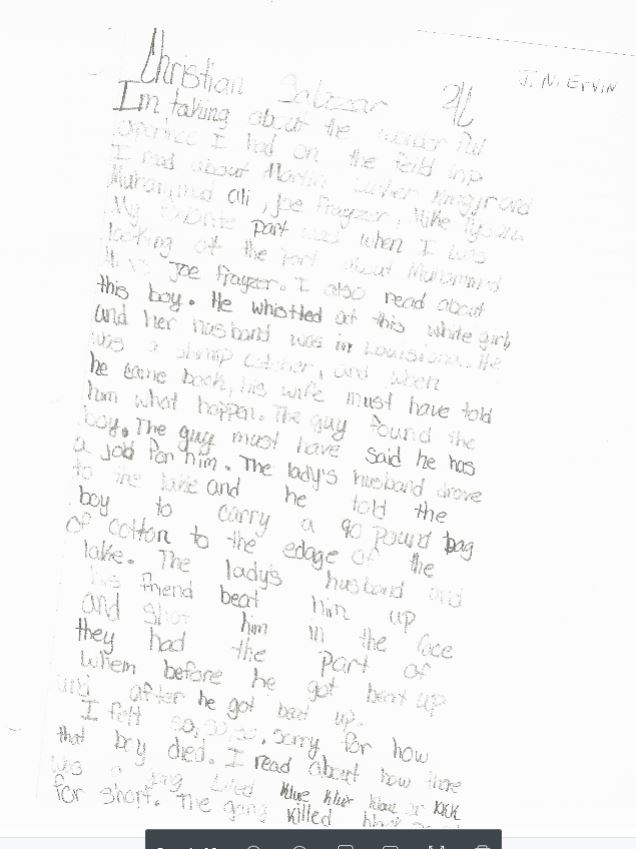 J. N. ERVIN
Christian Salazar
I'm talking about the wonder ful
I had on the feild
I read about Martin Luther and
Muhammad ali, Joe Frayzer, Mike Tyson
My favorite part was when I was
looking at the part about Muhammad
vs Joe Frayzer. I also read about
this boy. He whistled at this white girl,
and her husband was in Louisiana. He
was a shrimp catcher, and when
he came back, his wife must have told
him what happen. The guy found the
boy. The guy must have said he has
a job for him. The lady's husband drove
to the lake and he told the
boy to carry a 90 pound bag
of cotton to the edage of the
lake. The lady's husband and
his friend beat him up
and shot him in the face
they had the part of
whem before he got beat up
and after he got beat up.
I felt so, so, so, sorry for how
that boy died. I read about how there
was a gang called klue klux klan or KKK
for short. The gang killed